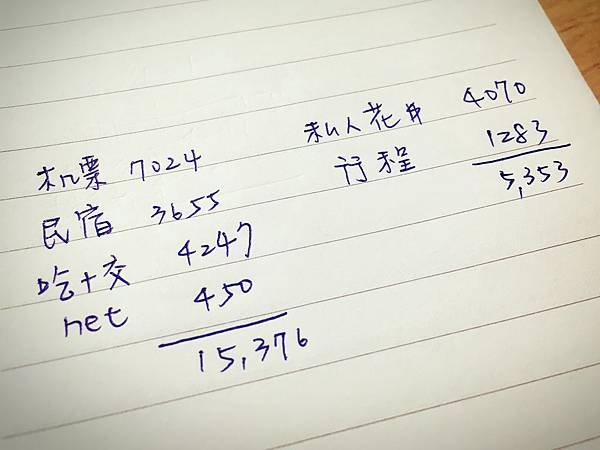 机票 7024
民宿 3655
吃+交 4247
net 450
15,376
私人花費 4070
行程 1283
5,353